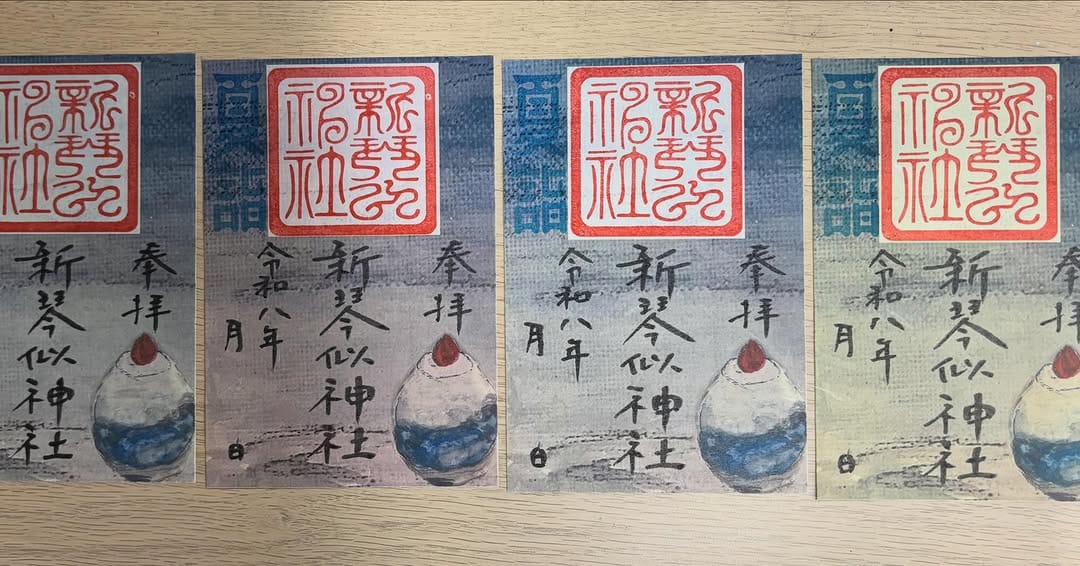 新琴似
神社
奉拝
新琴似神社
新琴似
神社
夏詣
奉拝
新琴似神社
令和八年
月 日
新琴似
神社
夏詣
奉拝
新琴似神社
令和八年
月 日
新琴似
神社
夏詣
奉拝
新琴似神社
令和八年
月 日